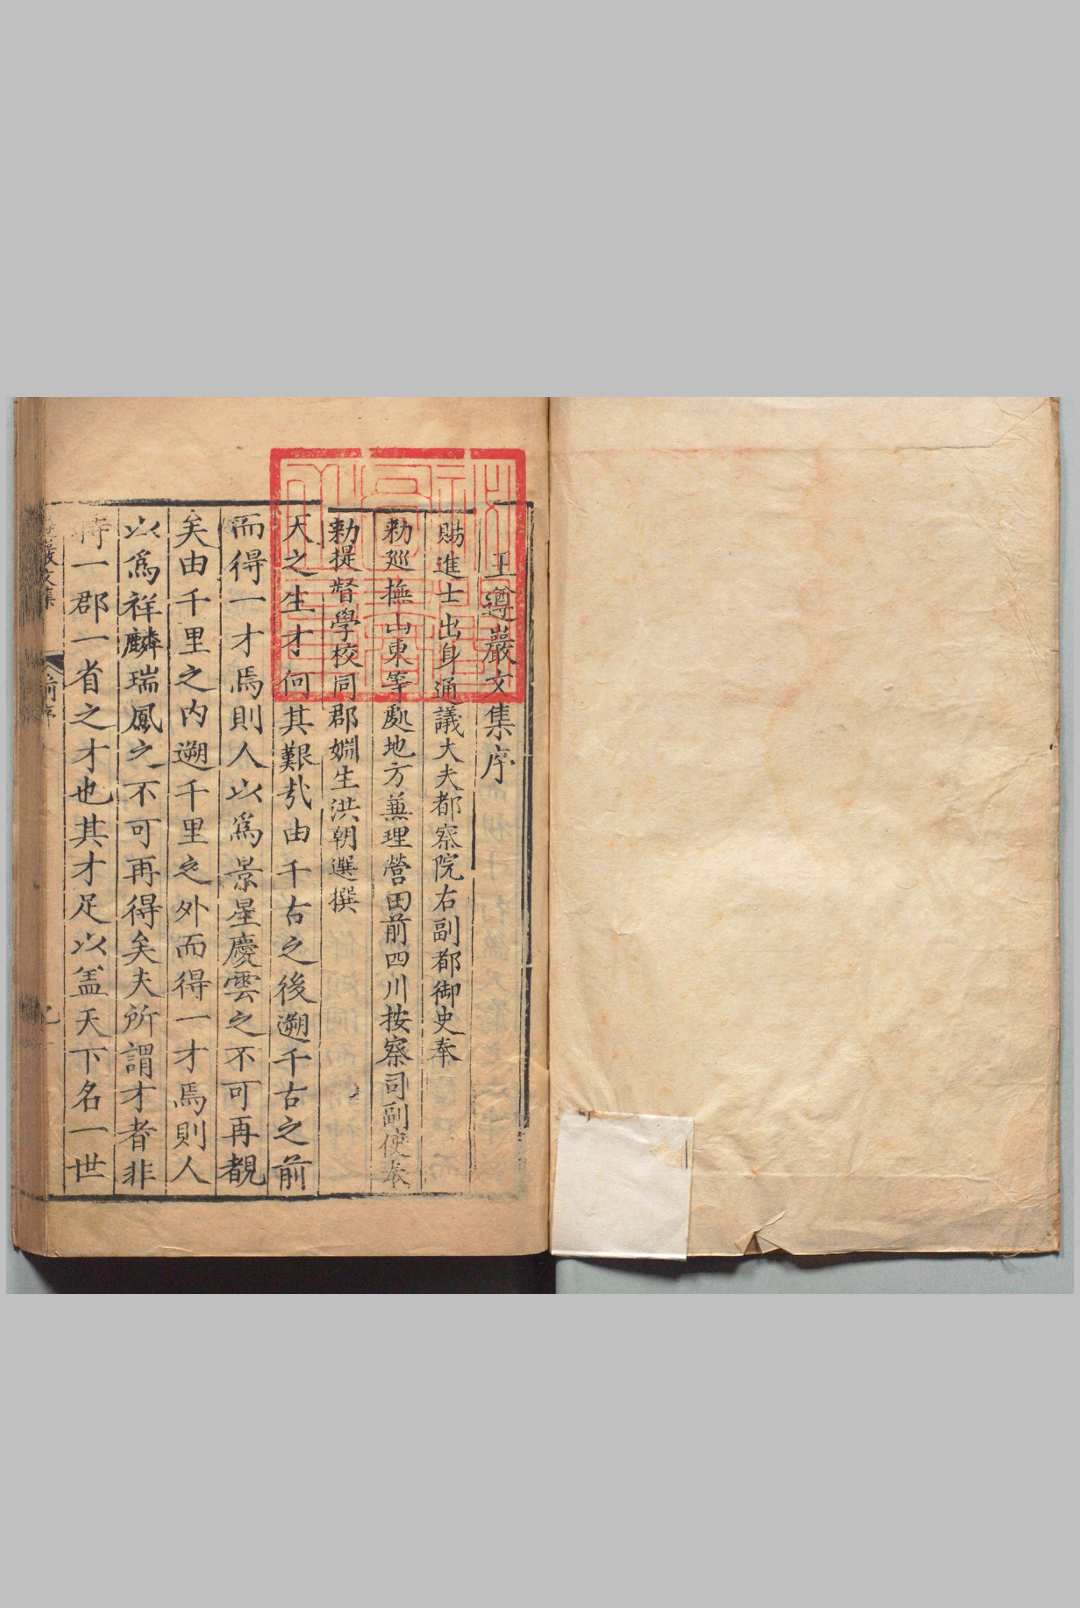 王遵巖文集序
賜進士出身通議大夫都察院右副都御史奉
勑廵撫山東等處地方兼理營田前四川按察司副使奉
勑提督學校同郡婣生洪朝選撰
天之生才何其艱哉由千古之後遡千古之前
而得一才焉則人以爲景星慶雲之不可再覩
矣由千里之内遡千里之外而得一才焉則人
以爲祥麟瑞鳳之不可再得矣夫所謂才者非
特一郡一省之才也其才足以盖天下名一世
巖文集 前序